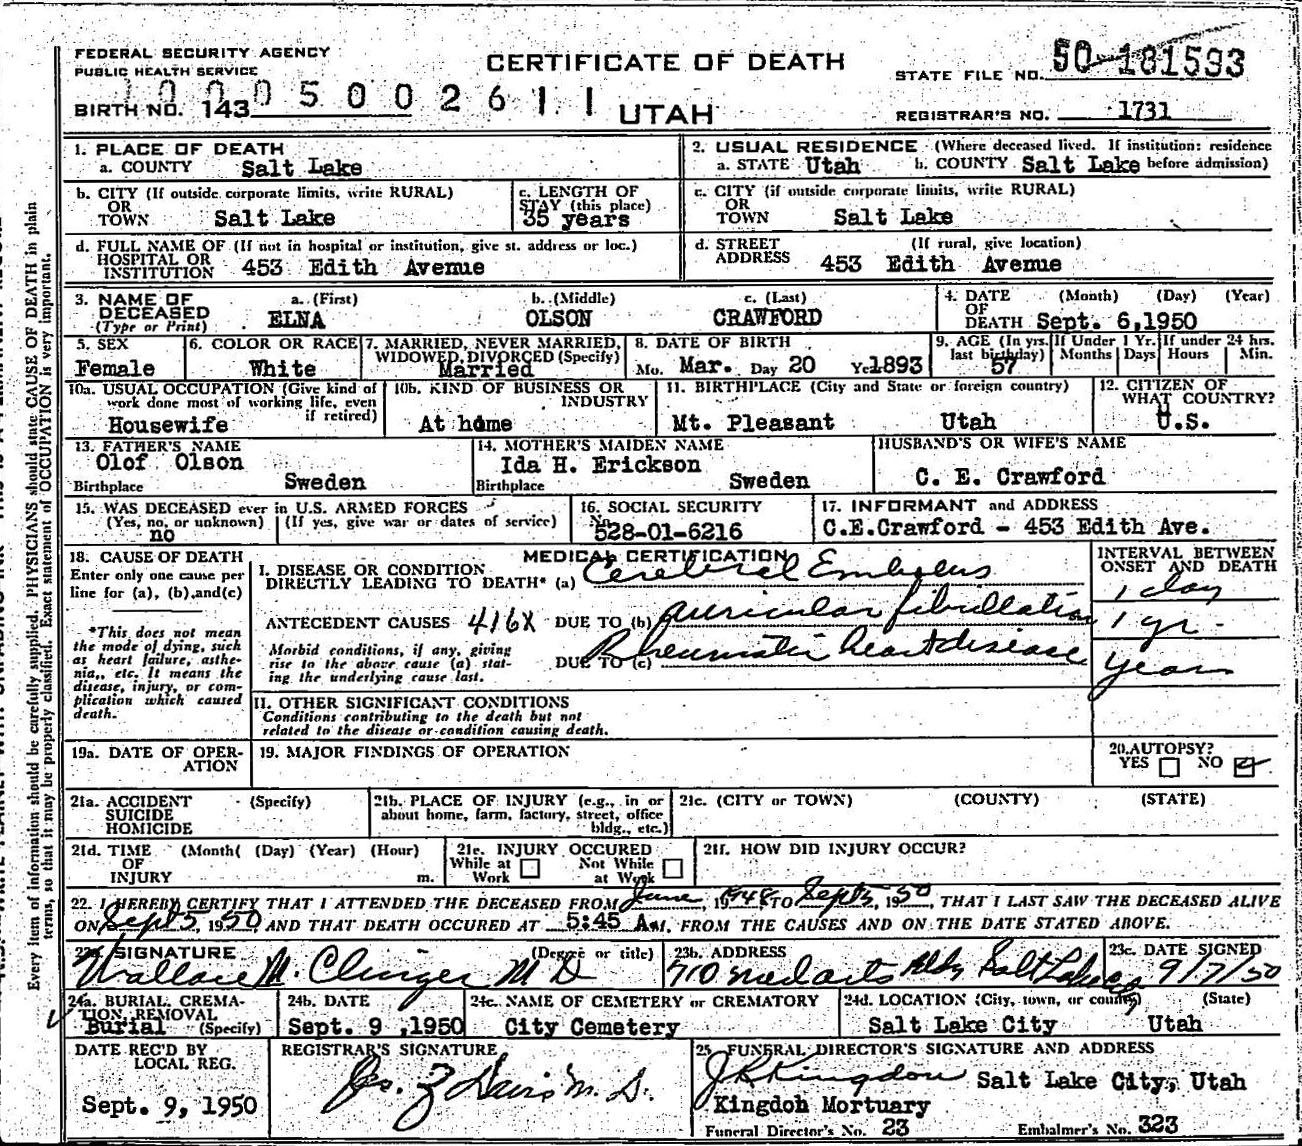 FEDERAL SECURITY AGENCY
PUBLIC HEALTH SERVICE
CERTIFICATE OF DEATH
STATE FILE NO. 50-181593
BIRTH NO. 143
1 0 0 0 5 0 0 2 6 1 1
UTAH
REGISTRAR'S NO. 1731
1. PLACE OF DEATH
a. COUNTY Salt Lake
2. USUAL RESIDENCE (Where deceased lived. If institution: residence before admission)
a. STATE Utah b. COUNTY Salt Lake
b. CITY (If outside corporate limits, write RURAL)
OR
TOWN Salt Lake
c. LENGTH OF
STAY (this place)
35 years
c. CITY (if outside corporate limits, write RURAL)
OR
TOWN Salt Lake
d. FULL NAME OF (If not in hospital or institution, give st. address or loc.)
HOSPITAL OR
INSTITUTION 453 Edith Avenue
d. STREET (If rural, give location)
ADDRESS 453 Edith Avenue
3. NAME OF DECEASED
(Type or Print)
a. (First) b. (Middle) c. (Last)
ELNA OLSON CRAWFORD
4. DATE (Month) (Day) (Year)
OF
DEATH Sept. 6,1950
5. SEX
Female
6. COLOR OR RACE
White
7. MARRIED, NEVER MARRIED,
WIDOWED, DIVORCED (Specify)
Married
8. DATE OF BIRTH
Mo. Mar. Day 20 Yr 1893
9. AGE (In yrs. last birthday) 57
If Under 1 Yr. Months Days
If under 24 hrs. Hours Min.
10a. USUAL OCCUPATION (Give kind of
work done most of working life, even
if retired)
Housewife
10b. KIND OF BUSINESS OR
INDUSTRY
At home
11. BIRTHPLACE (City and State or foreign country)
Mt. Pleasant Utah
12. CITIZEN OF
WHAT COUNTRY?
U.S.
13. FATHER'S NAME
Olof Olson
Birthplace Sweden
14. MOTHER'S MAIDEN NAME
Ida H. Erickson
Birthplace Sweden
HUSBAND'S OR WIFE'S NAME
C. E. Crawford
15. WAS DECEASED ever in U.S. ARMED FORCES
(Yes, no, or unknown) (If yes, give war or dates of service)
no
16. SOCIAL SECURITY
No.
528-01-6216
17. INFORMANT and ADDRESS
C.E.Crawford - 453 Edith Ave.
18. CAUSE OF DEATH
Enter only one cause per
line for (a), (b), and (c)
*This does not mean
the mode of dying, such
as heart failure, asthe-
nia,, etc. It means the
disease, injury, or com-
plication which caused
death.
MEDICAL CERTIFICATION
I. DISEASE OR CONDITION
DIRECTLY LEADING TO DEATH* (a) Cerebral Embolus
ANTECEDENT CAUSES 416X DUE TO (b) auricular fibrillation
Morbid conditions, if any, giving
rise to the above cause (a) stat-
ing the underlying cause last.
DUE TO (c) Rheumatic heart disease
INTERVAL BETWEEN
ONSET AND DEATH
1 day
1 yr.
years
II. OTHER SIGNIFICANT CONDITIONS
Conditions contributing to the death but not
related to the disease or condition causing death.
19a. DATE OF OPER-
ATION
19. MAJOR FINDINGS OF OPERATION
20. AUTOPSY?
YES NO
21a. ACCIDENT (Specify)
SUICIDE
HOMICIDE
21b. PLACE OF INJURY (e.g., in or
about home, farm, factory, street, office
bldg., etc.)
21c. (CITY or TOWN) (COUNTY) (STATE)
21d. TIME (Month( (Day) (Year) (Hour)
OF
INJURY m.
21e. INJURY OCCURED
While at Work Not While at Work
21f. HOW DID INJURY OCCUR?
22. I HEREBY CERTIFY THAT I ATTENDED THE DECEASED FROM June, 1948, TO Sept 5, 1950, THAT I LAST SAW THE DECEASED ALIVE
ON Sept 5, 1950 AND THAT DEATH OCCURED AT 5:45 A m. FROM THE CAUSES AND ON THE DATE STATED ABOVE.
23a. SIGNATURE (Degree or title)
Wallace M. Clinger M D
23b. ADDRESS
710 Med arts Bldg Salt Lake City
23c. DATE SIGNED
9/7/50
24a. BURIAL, CREMA-
TION, REMOVAL
Burial (Specify)
24b. DATE
Sept. 9 ,1950
24c. NAME OF CEMETERY or CREMATORY
City Cemetery
24d. LOCATION (City, town, or county) (State)
Salt Lake City Utah
DATE REC'D BY
LOCAL REG.
Sept. 9, 1950
REGISTRAR'S SIGNATURE
Jos. Z Davis M. D.
25 FUNERAL DIRECTOR'S SIGNATURE AND ADDRESS
J R Kingdon Salt Lake City, Utah
Kingdon Mortuary
Funeral Director's No. 23 Embalmer's No. 323
Every item of information should be carefully supplied. PHYSICIANS should state CAUSE OF DEATH in plain
terms, so that it may be properly classified. Exact statement of OCCUPATION is very important.